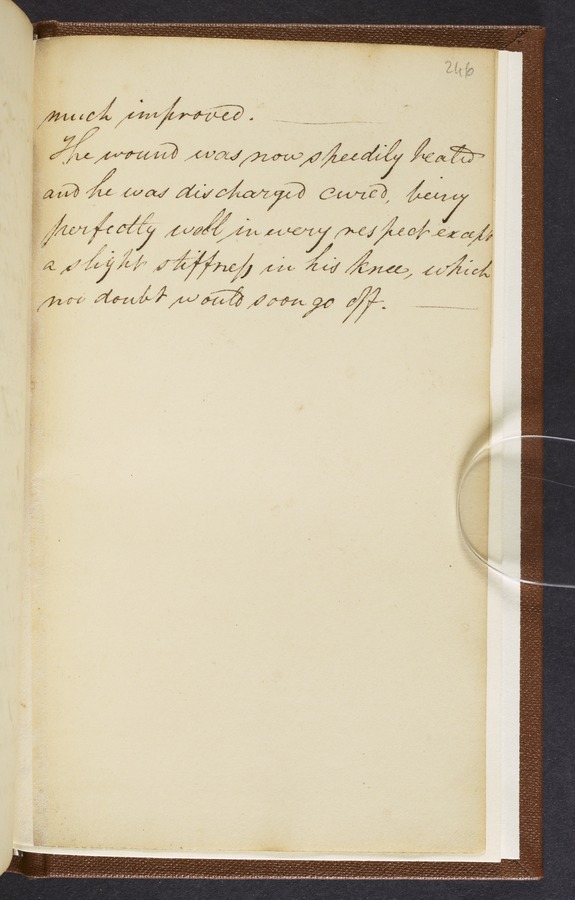 246
much improved.
The wound was now speedily healed
and he was discharged cured, being
perfectly well in every respect except
a slight stiffness in his knee, which
no doubt would soon go off.